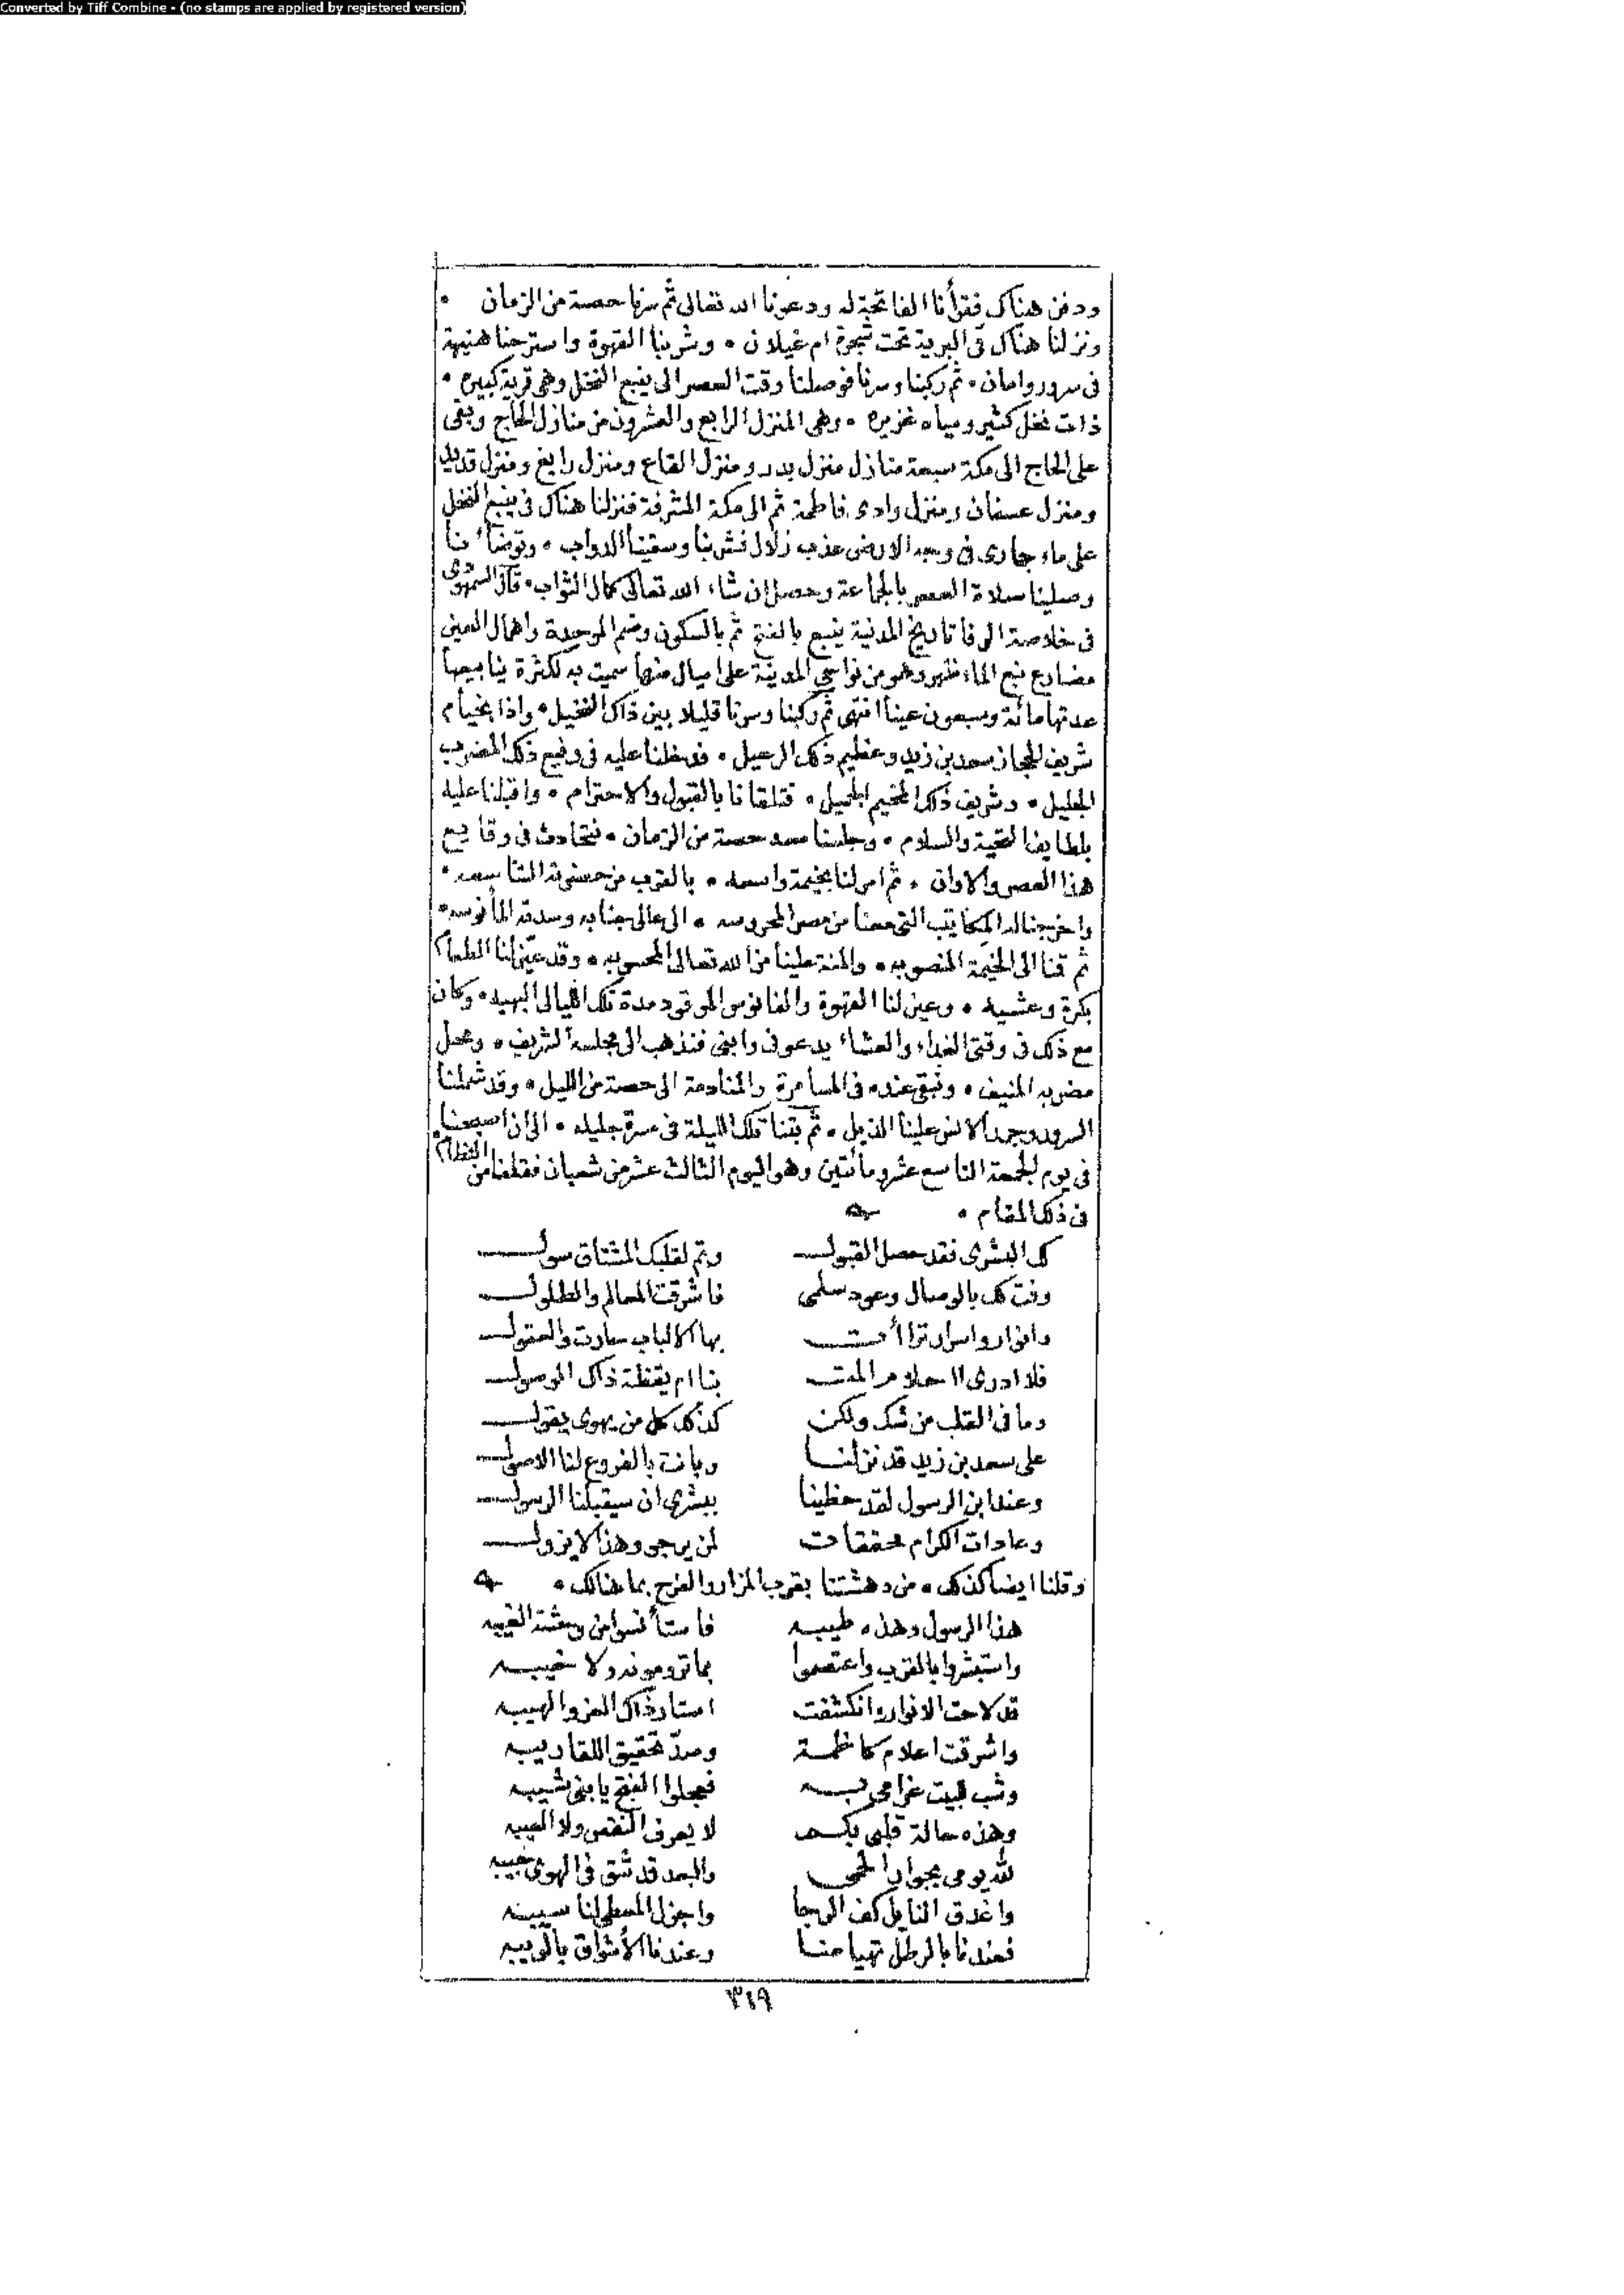 Converted by Tiff Combine - (no stamps are applied by registered version)
ودفن هناك فقرأنا الفاتحة له ودعونا الله تعالى ثم سرنا حصة من الزمان •
ونزلنا هناك في البرية تحت شجرة ام غيلان • وشربنا القهوة واسترحنا هنيهة
في سرور وامان • ثم ركبنا وسرنا فوصلنا وقت العصر الى ينبع النخل وهي قرية كبيرة •
ذات نخل كثير ومياه غزيره • وهي المنزل الرابع والعشرون من منازل الحاج وبقى
على الحاج الى مكة سبعة منازل منزل بدر ومنزل القاع ومنزل رابغ ومنزل قديد
ومنزل عسفان ومنزل وادى فاطمة ثم الى مكة المشرفة فنزلنا هناك في ينبع النخل
على ماء جارى في وجه الارض عذب زلال فشربنا وسقينا الدواب • وتوضأنا
وصلينا صلاة العصر بالجماعة وحصل ان شاء الله تعالى كمال الثواب • قال السمهودى
في خلاصة الوفا تاريخ المدينة ينبع بالفتح ثم بالسكون وضم الموحدة واهمال العين
مضارع نبع الماء ظهر وهو من نواحي المدينة على اميال منها سميت به لكثرة ينابيعها
عدتها مائة وسبعون عينا انتهى ثم ركبنا وسرنا قليلا بين ذاك النخيل • واذا بخيام
شريف الحجاز سعد بن زيد وعظيم ذلك الرعيل • فدخلنا عليه في رفيع ذلك المضرب
الجليل • وشريف ذلك المخيم الجميل • فتلقانا بالقبول والاحترام • واقبلنا عليه
بلطايف التحية والسلام • وجلسنا معه حصة من الزمان • نتحادث في وقايع
هذا العصر والاوان • ثم امر لنا بخيمة واسعه • بالقرب من حضرته الشاسعه •
واخرجنا له المكاتيب التي معنا من مصر المحروسه • الى عالى جنابه وسدته المأنوسه •
ثم قمنا الى الخيمة المنصوبه • والمنة علينا من الله تعالى المحسوبه • وقد عين لنا الطعام
بكرة وعشيه • وعين لنا القهوة والفانوس الموقود مدة تلك الليالى البهيه • وكان
مع ذلك في وقتى الغداء والعشاء يدعونى وابنى فنذهب الى مجلسه الشريف • ومحل
مضربه المنيف • ونبقى عنده في المسامرة والمنادمة الى حصة من الليل • وقد شملنا
السرور وجر الانس علينا الذيل • ثم بتنا تلك الليلة في مسرة جليله • الى ان اصبحنا
في يوم الجمعة التاسع عشر ومائتين وهو اليوم الثالث عشر من شعبان فقلنا من النظام
في ذلك المقام •
لك البشرى فقد حصل القبول وتم لقلبك المشتاق سول
وفت لك بالوصال وعود سلمى فاشرقت المعالم والطلول
وانوار واسرار تراأت بها الالباب حارت والعقول
فلا ادرى ااحلام المت بنا ام يقظة ذاك الوصول
وما في القلب من شك ولكن كذلك كل من يهوى يقول
على سعد بن زيد قد نزلنا وبانت بالفروع لنا الاصول
وعند ابن الرسول لقد حظينا ببشرى ان سيقبلنا الرسول
وعادات الكرام محققات لمن يرجو وهذا لا يزول
وقلنا ايضا كذلك • من دهشتنا بقرب المزار والفرح بما هنالك •
هذا الرسول وهذه طيبه فاستأنسوا من وحشة الغيبه
واستبشروا بالقرب واعتصموا بما ترومونه ولا خيبه
قد لاحت الانوار وانكشفت استار ذاك العز والهيبه
واشرقت اعلام كاظمة وصد تحقيق اللقا ريبه
وشب لبيت غرامى به فعجلوا الفتح يا بنى شيبه
وهذه حالة قلبى بكم لا يعرف النقص ولا العيبه
لله يومى بجوار الحمى والبعد قد شق في الهوى جيبه
واغدق النايل كف الرجا واجزل المعطى لنا سيبه
فعندنا بالرطل تهيامنا وعندنا الأشواق بالويبه
٣١٩